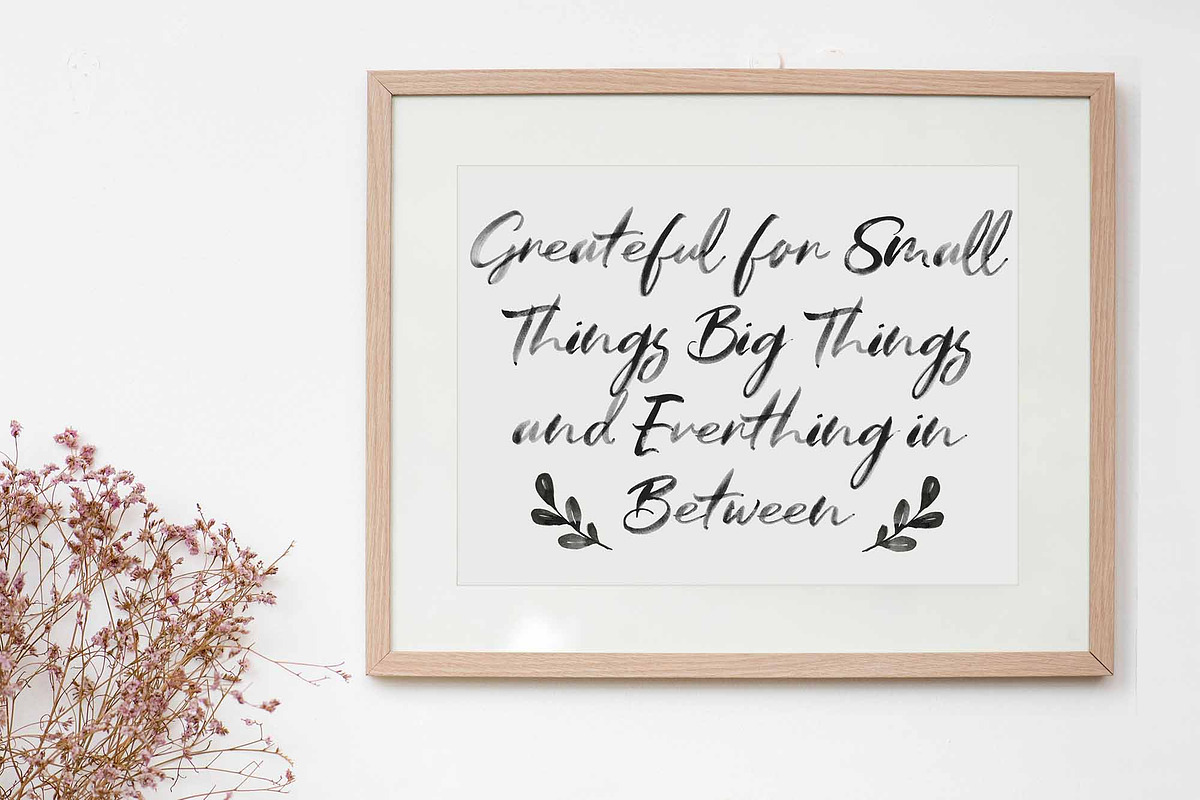 Greateful for Small
Things Big Things
and Everthing in
Between